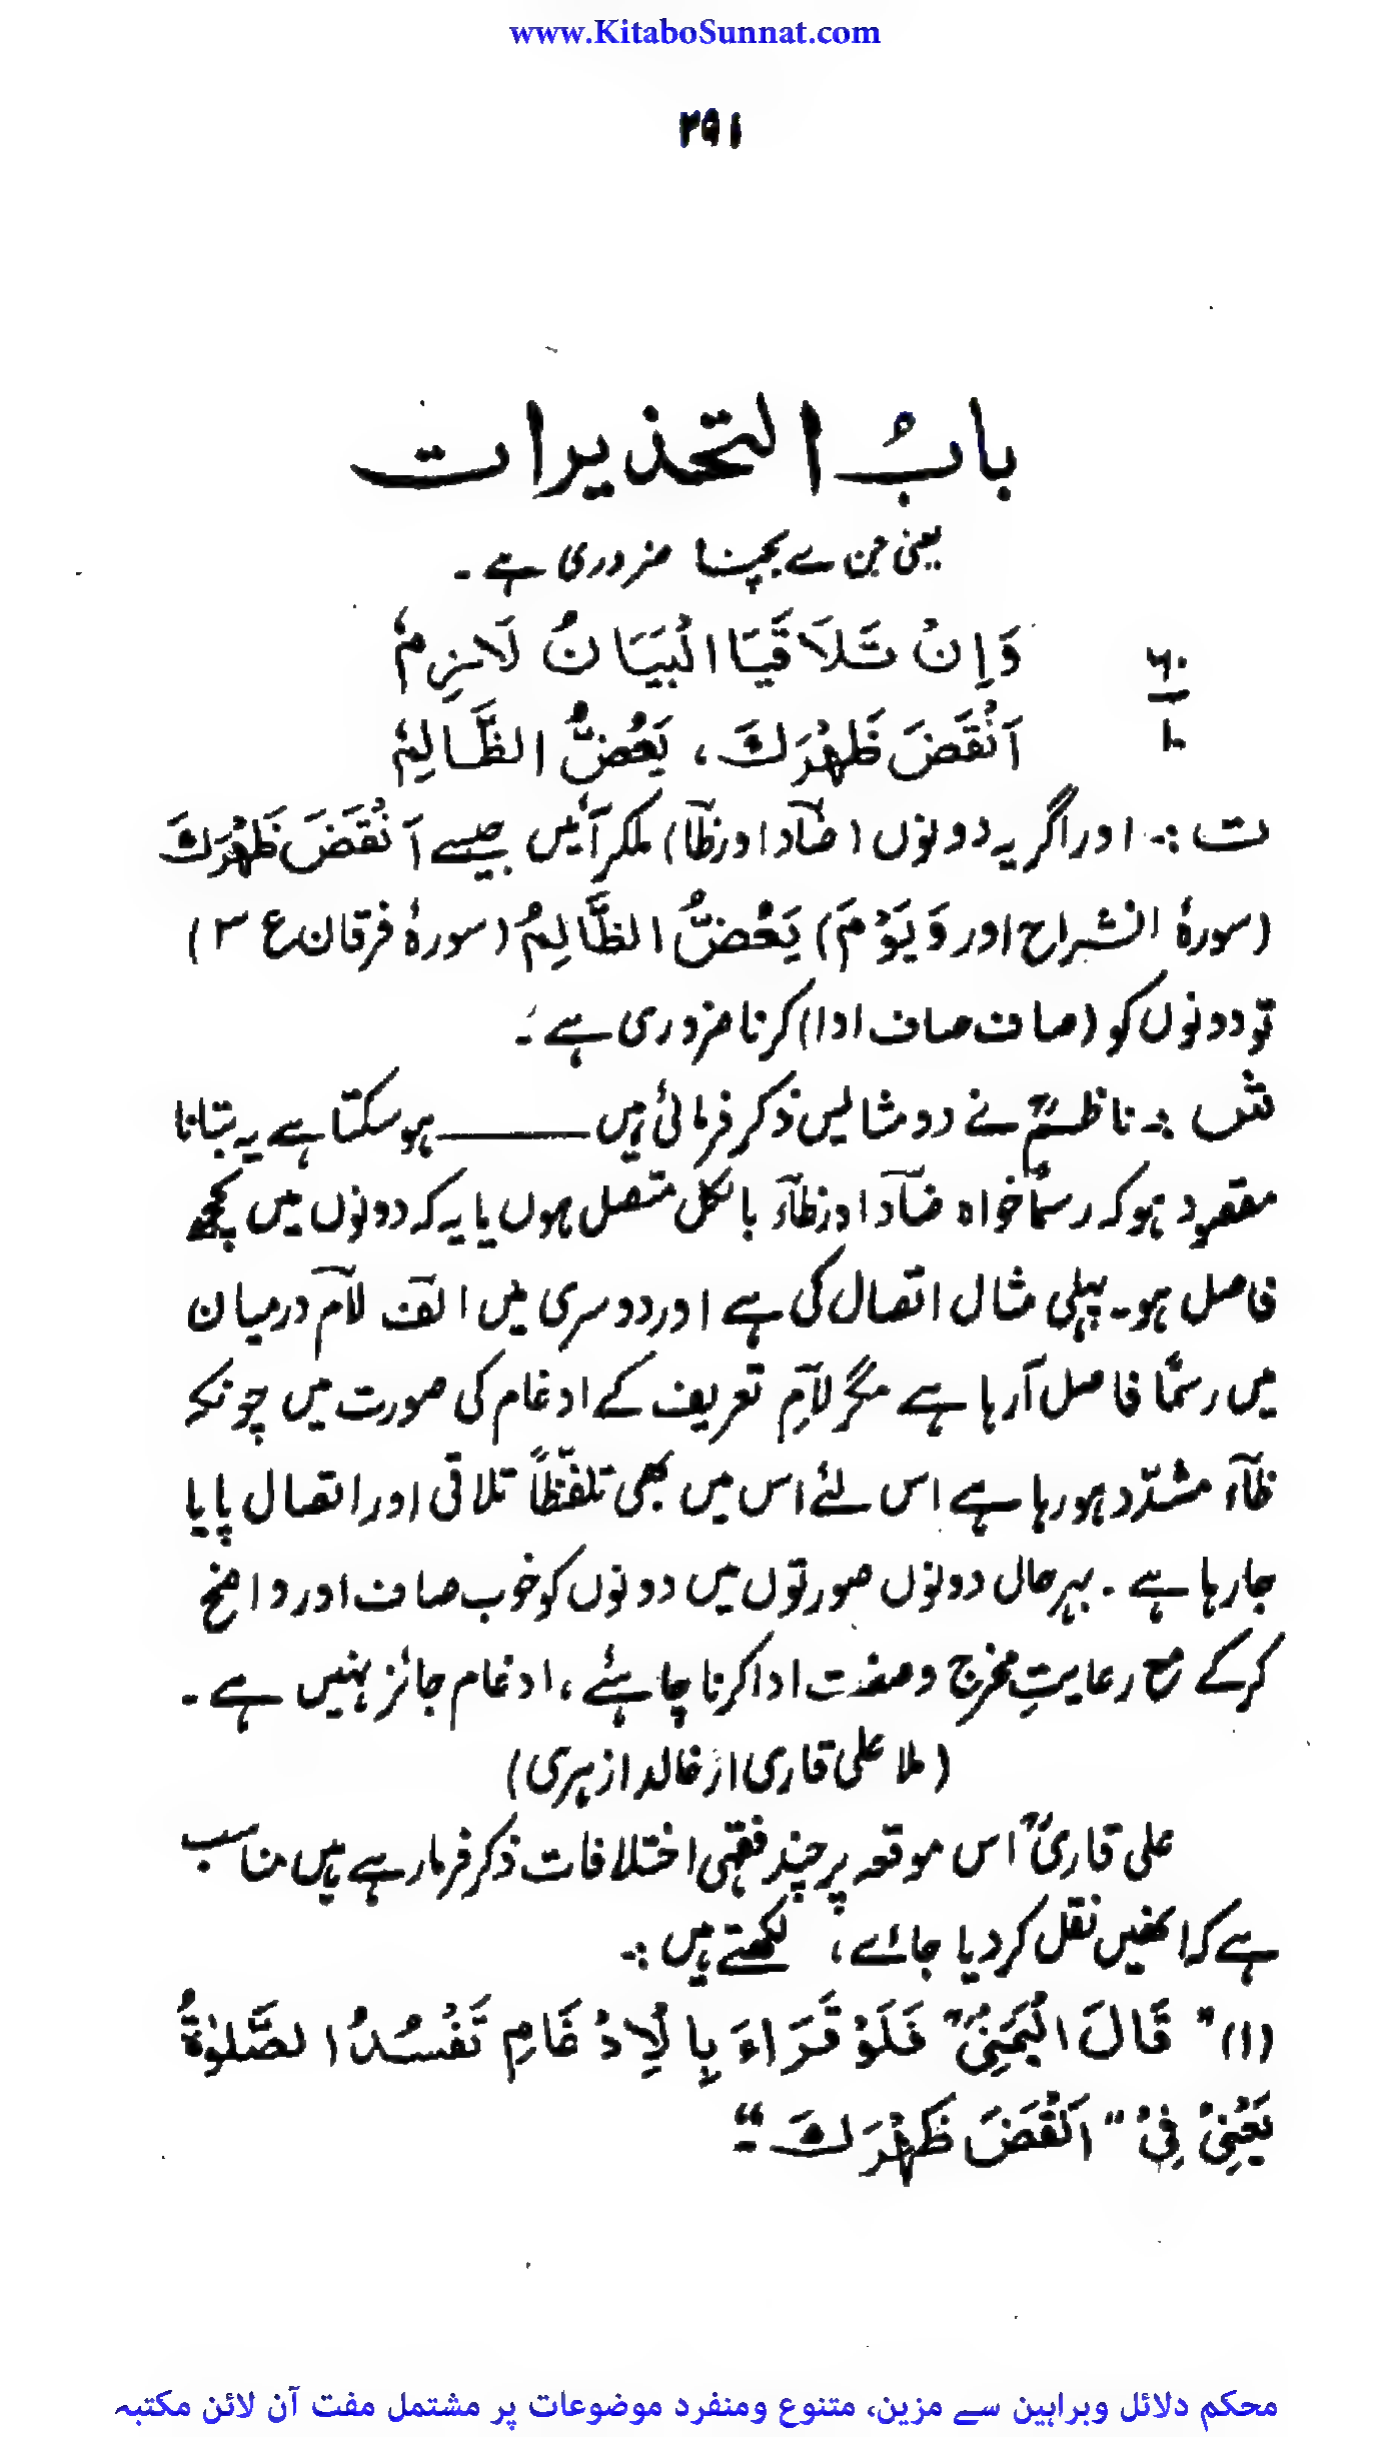 www.KitaboSunnat.com
۲۹۱
بابُ التحذیرات
یعنی جن سے بچنا ضروری ہے۔
۶۰
۱
وَاِنْ تَلَاقَیَا الْبَیَانُ لَازِمٗ
اَنْقَضَ ظَهْرَكَ، یَعَضُّ الظَّالِمٗ
ت :۔ اور اگر یہ دونوں (ضآد اور ظآ) ملکر آئیں جیسے اَنْقَضَ ظَهْرَكَ
(سورۂ انشراح اور وَیَوْمَ) یَعَضُّ الظَّالِمُ (سورۂ فرقان ع ۳)
تو دونوں کو (صاف صاف ادا) کرنا ضروری ہے۔
ش :۔ ناظمؒ نے دو مثالیں ذکر فرمائی ہیں ــــــــ ہو سکتا ہے یہ بتانا
مقصود ہو کہ رسمًا خواہ ضآد اور ظآء بالکل متصل ہوں یا یہ کہ دونوں میں کچھ
فاصل ہو۔ پہلی مثال اتصال کی ہے اور دوسری میں الف لآم درمیان
میں رسمًا فاصل آرہا ہے مگر لآمِ تعریف کے ادغام کی صورت میں چونکہ
ظآء مشدّد ہو رہا ہے اس لئے اس میں بھی تلفّظاً تلاقی اور اتصال پایا
جارہا ہے۔ بہرحال دونوں صورتوں میں دونوں کو خوب صاف اور واضح
کرکے مع رعایتِ مخرج وصفت ادا کرنا چاہئے، ادغام جائز نہیں ہے۔
(ملا علی قاری از خالد ازہری)
علی قاریؒ اس موقعہ پر چند فقہی اختلافات ذکر فرمارہے ہیں مناسب
ہے کہ انھیں نقل کردیا جائے، لکھتے ہیں :۔
(۱) " قَالَ الْیَمَنِیُّ فَلَوْ قَرَاءَ بِالْاِدْغَامِ تَفْسُدُ الصَّلٰوةُ
یَعْنِیْ فِیْ " اَنْقَضَ ظَهْرَكَ "۔
محکم دلائل وبراہین سے مزین، متنوع ومنفرد موضوعات پر مشتمل مفت آن لائن مکتبہ